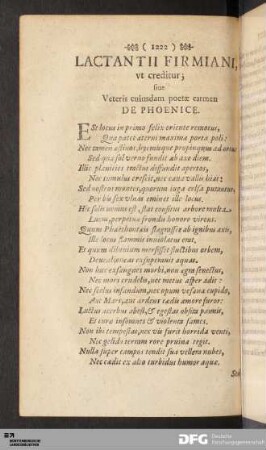 ( 1222 )
LACTANTII FIRMIANI,
vt creditur;
siue
Veteris cuiusdam poetæ carmen
DE PHOENICE.
ESt locus in primo felix oriente remotus,
Qua patet æterni maxima porta poli:
Nec tamen æstiuos, hyemisque propinquus ad ortus
Sed qua sol verno fundit ab axe diem.
Illic planities tractus diffundit apertos,
Nec tumulus crescit, nec caua vallis hiat:
Sed nostros montes, quorum iuga celsa putantur,
Per bis sex vlnas eminet ille locus.
Hic solis nemus est, & consitus arbore multa
Lucus, perpetuæ frondis honore virens.
Quum Phaethontæis flagrasset ab ignibus axis,
Ille locus flammis inuiolatus erat,
Et quum diluuium mersisset fluctibus orbem,
Deucaleoneas exsuperauit aquas.
Non huc exsangues morbi, non ægra senectus,
Nec mors crudelis, nec metus asper adit:
Nec scelus infandum, nec opum vesana cupido,
Aut Mars, aut ardens cædis amore furor:
Luctus acerbus abest, & egestas obsita pannis,
Et curæ insomnes & violenta fames.
Non ibi tempestas, nec vis furit horrida venti,
Nec gelido terram rore pruina tegit.
Nulla super campos tendit sua vellera nubes,
Nec cadit ex alto turbidus humor aquæ.
DFG